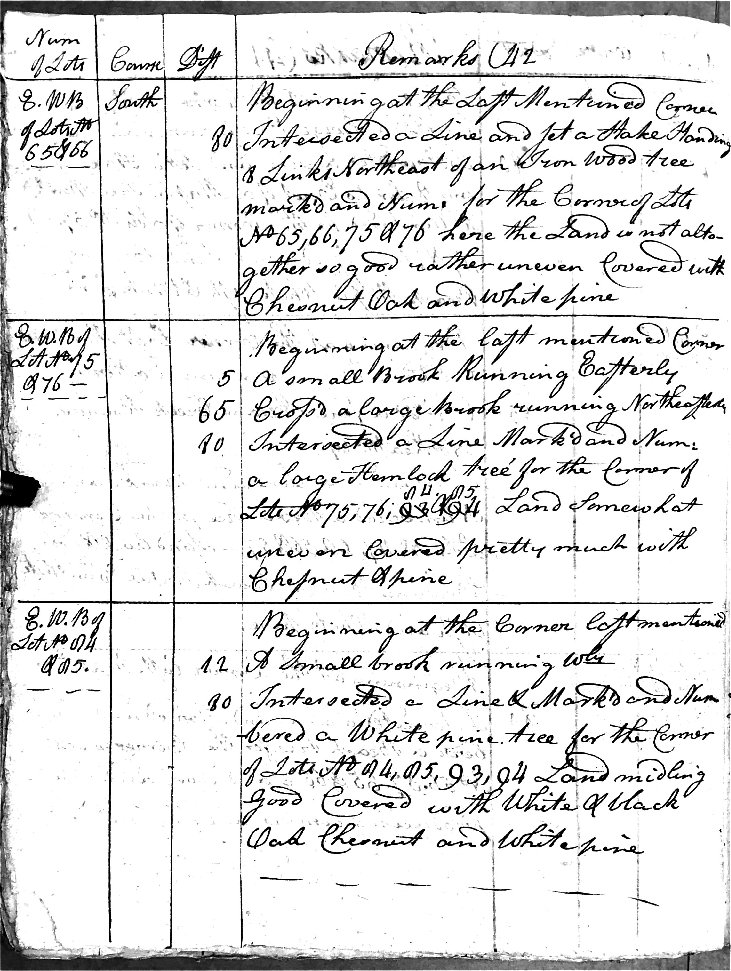 Num of Lots Course Dist Remarks (42
E. W B South Beginning at the Last Mentioned Corner
of Lots No 80 Intersected a Line and set a Stake Standing
65 & 66 8 Links Northeast of an Iron Wood tree
markd and Num: for the Corner of Lots
No 65, 66, 75 & 76 here the Land is not alto-
gether so good rather uneven Covered with
Chesnut Oak and White pine
E. W. B of Beginning at the last mentioned Corner
Lot No 75 5 A small Brook Running Easterly
& 76 — 65 Cross'd a large Brook running Northeasterly
80 Intersected a Line Mark'd and Num:
a large Hemlock tree for the Corner of
84, 85,
Lots No 75, 76, 93 & 94 Land Somewhat
uneven Covered pretty much with
Chesnut & pine
E. W. B of Beginning at the Corner last mentioned
Lot No 84 12 A Small brook running Wly
& 85. 80 Intersected a Line & Mark'd and Num
bered a White pine tree for the Corner
of Lots No 84, 85, 93, 94 Land midling
good Covered with White & black
Oak Chesnut and White pine